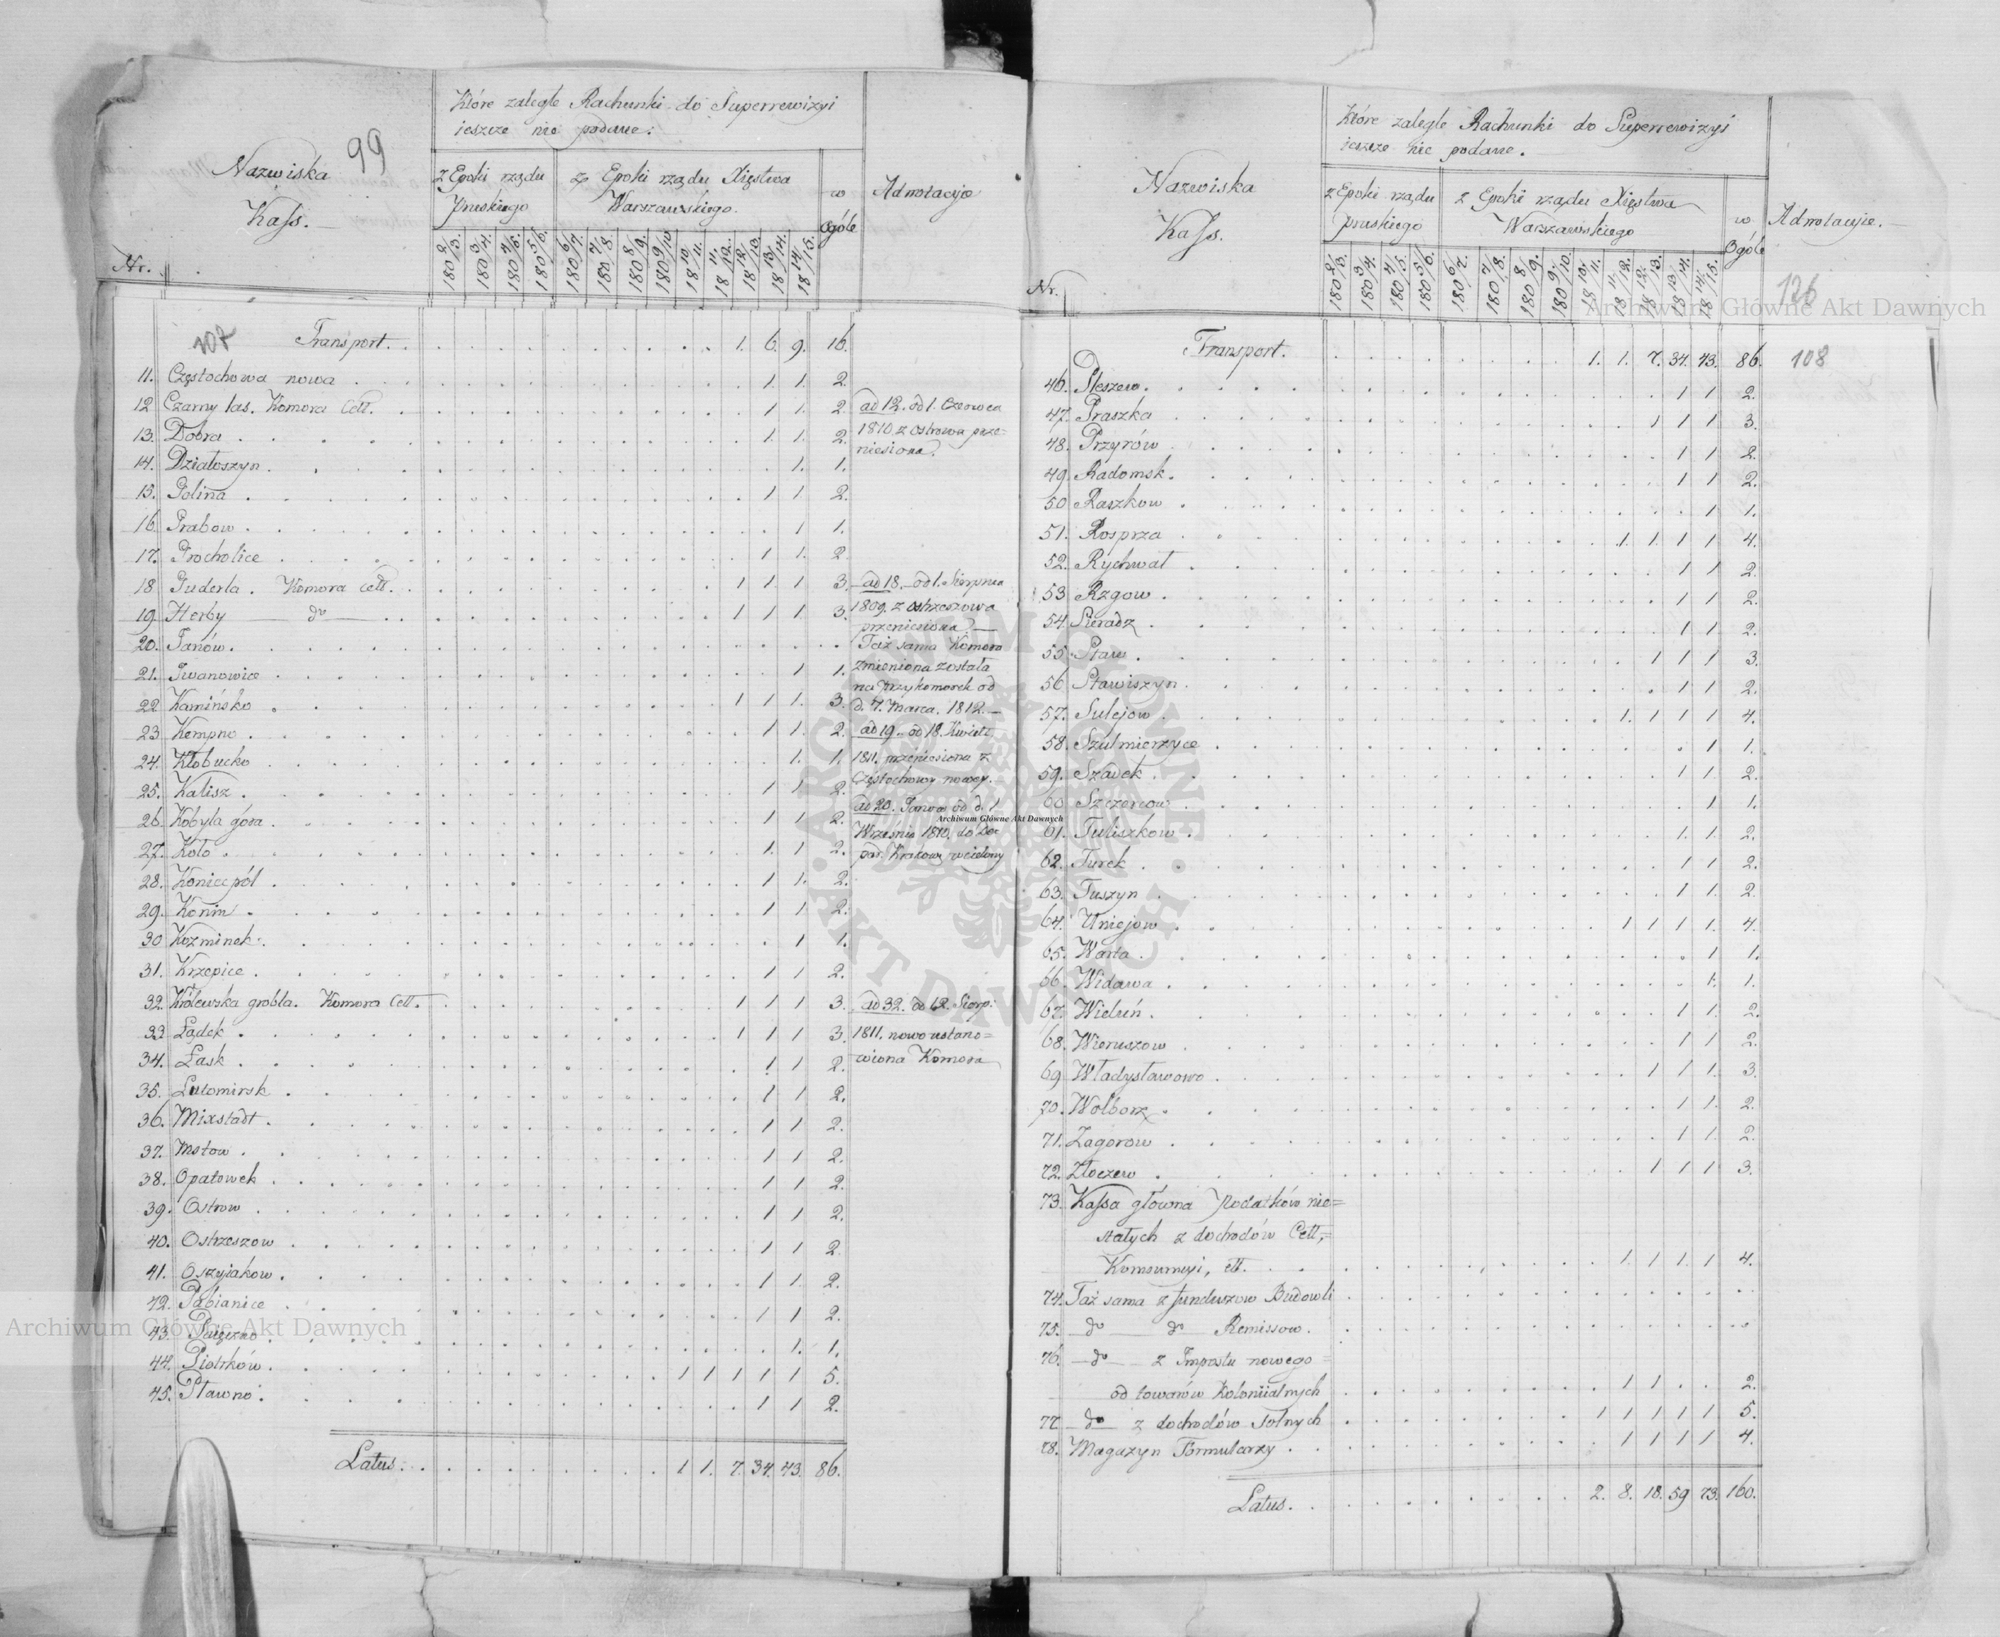 99
Które zaległe Rachunki do Superrewizyi
ieszcze nie podane.
Nazwiska
Kass.
z Epoki rządu
Pruskiego
z Epoki rządu Xięstwa
Warszawskiego.
w
Ogóle
Adnotacyie
Nr.
180 2/3. 180 3/4. 180 4/5. 180 5/6. 180 6/7. 180 7/8. 180 8/9. 180 9/10 18 10/11. 18 11/12. 18 12/13. 18 13/14. 18 14/15.
107 Transport. 1. 6. 9. 16.
11. Częstochowa nowa 1. 1. 2.
12 Czarny las. Komora Cell. 1 1. 2. ad 12. od 1. Czerwca
1810 z Ostrowa prze-
niesiona.
13. Dobra 1. 1. 2.
14. Działoszyn. 1. 1.
15. Golina 1 1 2.
16. Grabow. 1 1.
17. Grocholice 1 1. 2.
18 Guderla. Komora Cell. 1 1 1 3. ad 18. od 1. Sierpnia
1809. z Ostrzeszowa
przeniesiona.
19. Herby do 1 1 1. 3.
Taż sama Komora
zmieniona została
na Przykomorek od
d. 7. Marca. 1812.
20. Janów.
21. Iwanowice 1 1.
22. Kamińsko 1 1 1. 3.
23 Kempno 1 1. 2. ad 19. od 18. Kwiet.
1811. przeniesiona z
Częstochowy nowey.
24. Kłobucko 1. 1.
25. Kalisz. 1 1 2.
ad 20. Janow od d. 1
Września 1810. do De-
par. Krakow. wcielony
26. Kobyla góra. 1 1. 2.
27. Koło 1. 1 2.
28. Koniecpól 1 1. 2.
29. Konin 1 1. 2.
30 Kozminek. 1 1.
31. Krzepice 1 1 2.
32. Królewska grobla. Komora Cell. 1 1 1 3. ad 32. od 12. Sierp:
1811. nowo ustano=
wiona Komora
33. Lądek 1 1 1 3.
34. Łask 1 1 2.
35. Lutomirsk 1 1 2.
36. Mixstadt. 1 1 2.
37. Mstow 1 1 2.
38. Opatowek 1 1 2.
39. Ostrow 1 1 2.
40. Ostrzeszow 1 1 2.
41. Oszyiakow. 1 1. 2.
42. Pabianice 1 1 2.
43. Paięczno 1. 1.
44. Piotrków. 1 1 1 1 1 5.
45. Pławno. 1 1 2.
Latus. 1 1. 7. 34. 43. 86.
Które zaległe Rachunki do Superrewizyi
ieszcze nie podane.
Nazwiska
Kass.
z Epoki rządu
pruskiego
z Epoki rządu Xięstwa
Warszawskiego
w
Ogóle
Adnotacyie.
Nr.
180 2/3. 180 3/4. 180 4/5. 180 5/6. 180 6/7. 180 7/8. 180 8/9. 180 9/10. 18 10/11. 18 11/12. 18 12/13. 18 13/14. 18 14/15.
126
Transport. 1. 1. 7. 34. 43. 86. 108
46. Pleszew. 1 1 2.
47. Praszka 1 1 1 3.
48. Przyrów 1 1 2.
49. Radomsk. 1 1 2.
50 Raszkow 1 1.
51. Rosprza 1. 1. 1 1 4.
52. Rychwał 1 1 2.
53 Rzgow. 1 1 2.
54. Sieradz 1 1 2.
55. Staw. 1 1 1 3.
56 Stawiszyn 1 1 2.
57. Sulejow 1. 1 1 1 4.
58. Szulmierzyce 1 1.
59. Szadek 1 1 2.
60 Szczercow 1 1.
61. Tuliszkow 1. 1. 2.
62. Turek 1 1 2.
63. Tuszyn 1 1. 2.
64. Uniejow 1 1 1 1. 4.
65. Warta 1 1.
66. Widawa 1. 1.
67. Wieluń. 1 1. 2.
68. Wieruszow 1 1 2.
69 Władysławowo 1 1 1. 3.
70. Wolborz 1 1. 2.
71. Zagorow 1 1. 2.
72. Złoczew 1 1 1 3.
73. Kassa główna Podatków nie=
stałych z dochodów Cell,=
Konsumcyi, ett. 1. 1 1 1 4.
74. Taż sama z funduszow Budowli
75. do do Remissow.
76. do z Impostu nowego =
od towarów kolonialnych 1 1 2.
77. do z dochodów Solnych 1 1 1 1 1 5.
78. Magazyn Formularzy 1 1 1 1 4.
Latus. 2. 8. 18. 59 73. 160.
Archiwum Główne Akt Dawnych
Archiwum Główne Akt Dawnych
Archiwum Główne Akt Dawnych
ARCHIWUM GŁÓWNE · AKT DAWNYCH ·